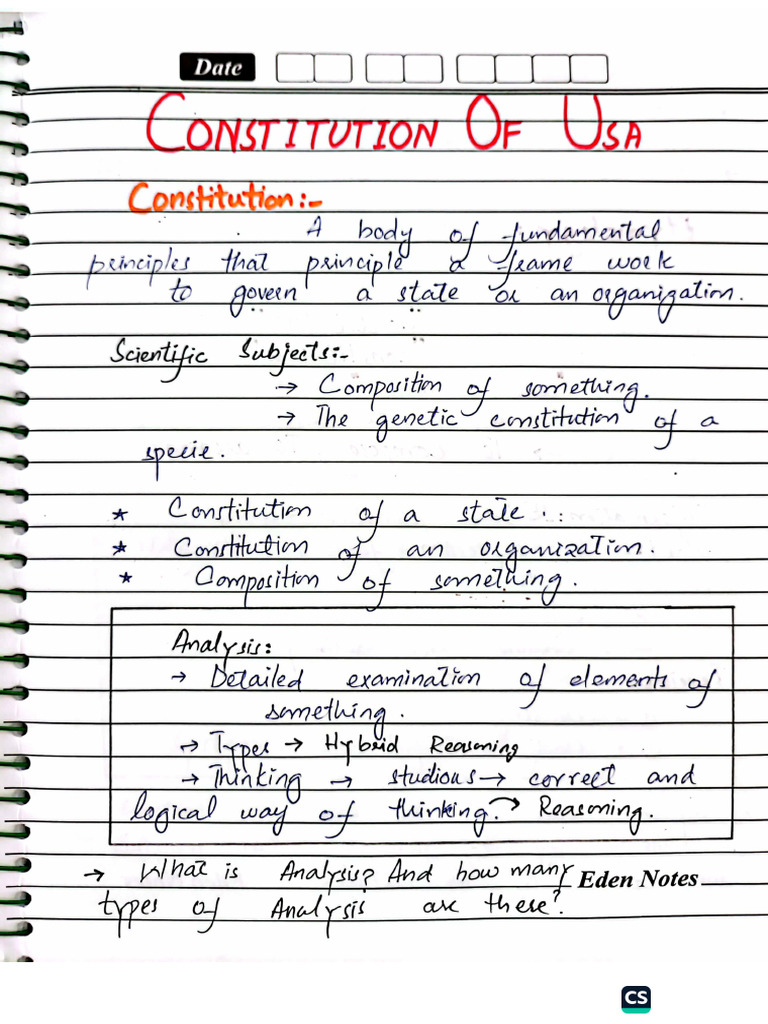 Date
CONSTITUTION OF USA
Constitution:-
A body of fundamental
principles that principle a frame work
to govern a state or an organization.
Scientific Subjects:-
→ Composition of something.
→ The genetic constitution of a
specie.
* Constitution of a state.
* Constitution of an organization.
* Composition of something.
Analysis:
→ Detailed examination of elements of
something.
→ Types → Hybrid Reasoning
→ Thinking → studious → correct and
logical way of thinking. → Reasoning.
→ What is Analysis? And how many
Eden Notes
types of Analysis are these?
CS